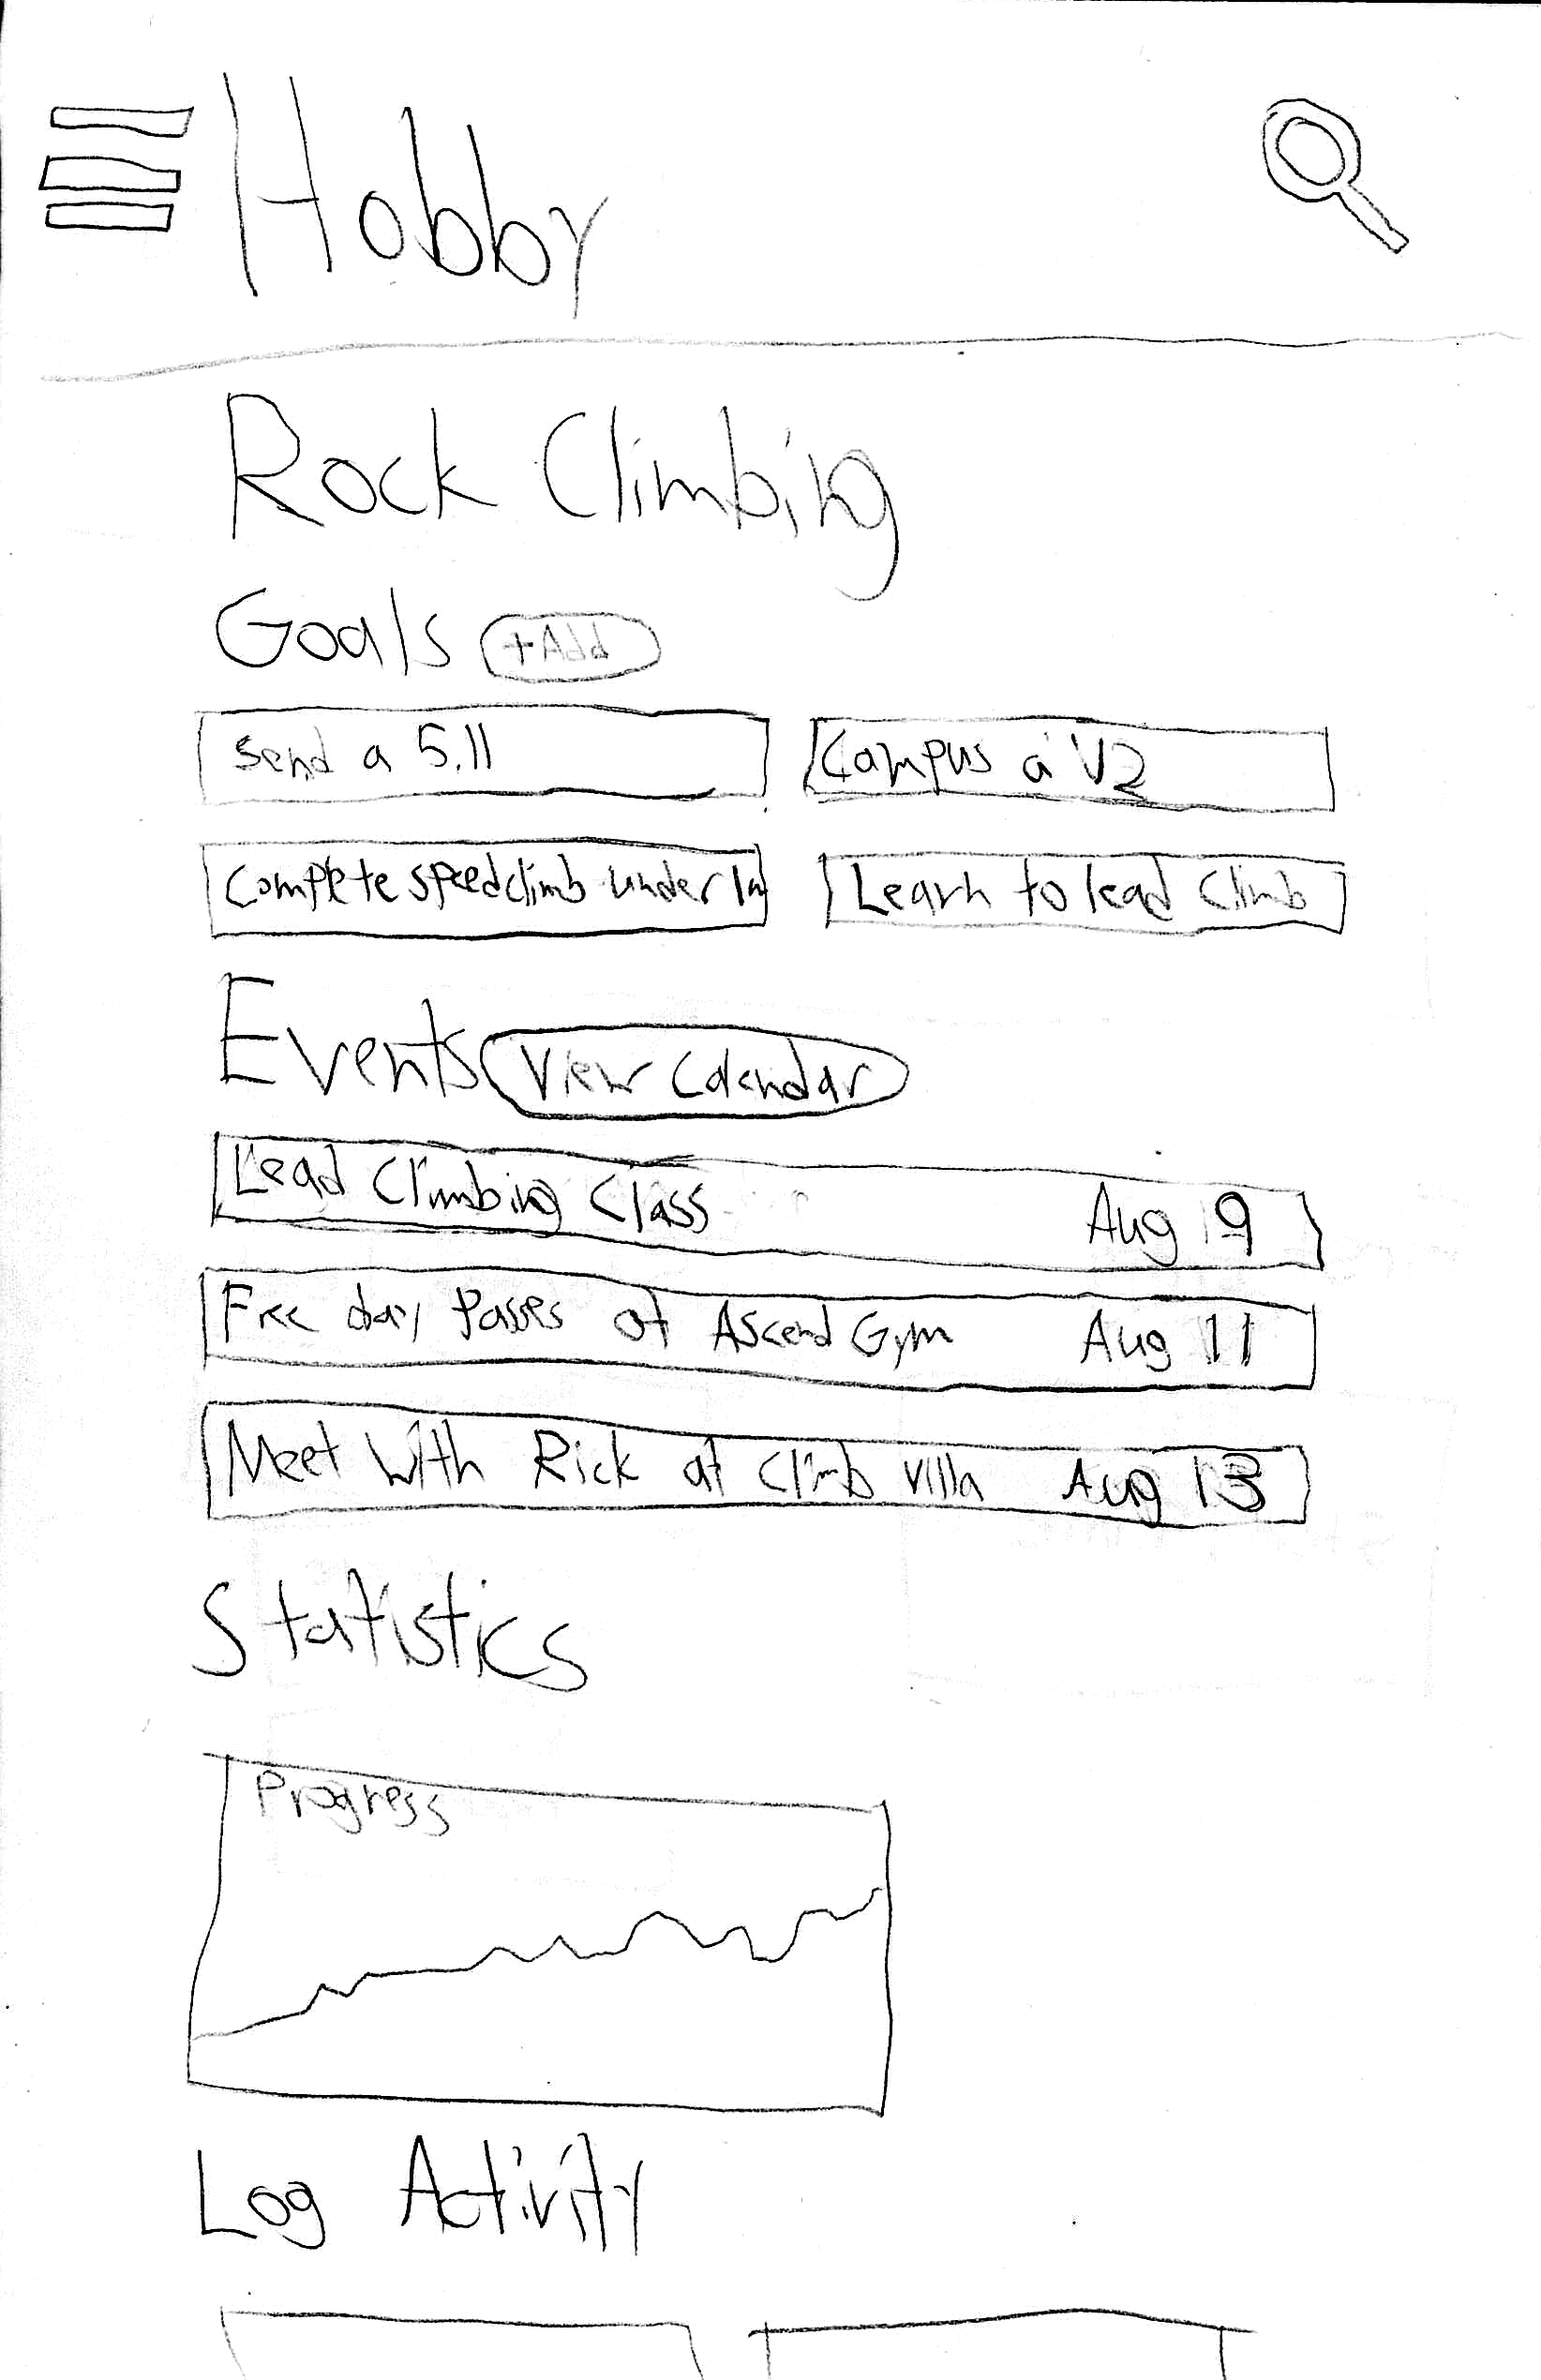 Hobby
Rock Climbing
Goals +Add
Send a 5.11
Campus a V2
Complete speed climb under 1m
Learn to lead climb
Events View Calendar
Lead Climbing Class Aug 9
Free day Passes at Ascend Gym Aug 11
Meet with Rick at Climb Villa Aug 13
Statistics
Progress
Log Activity